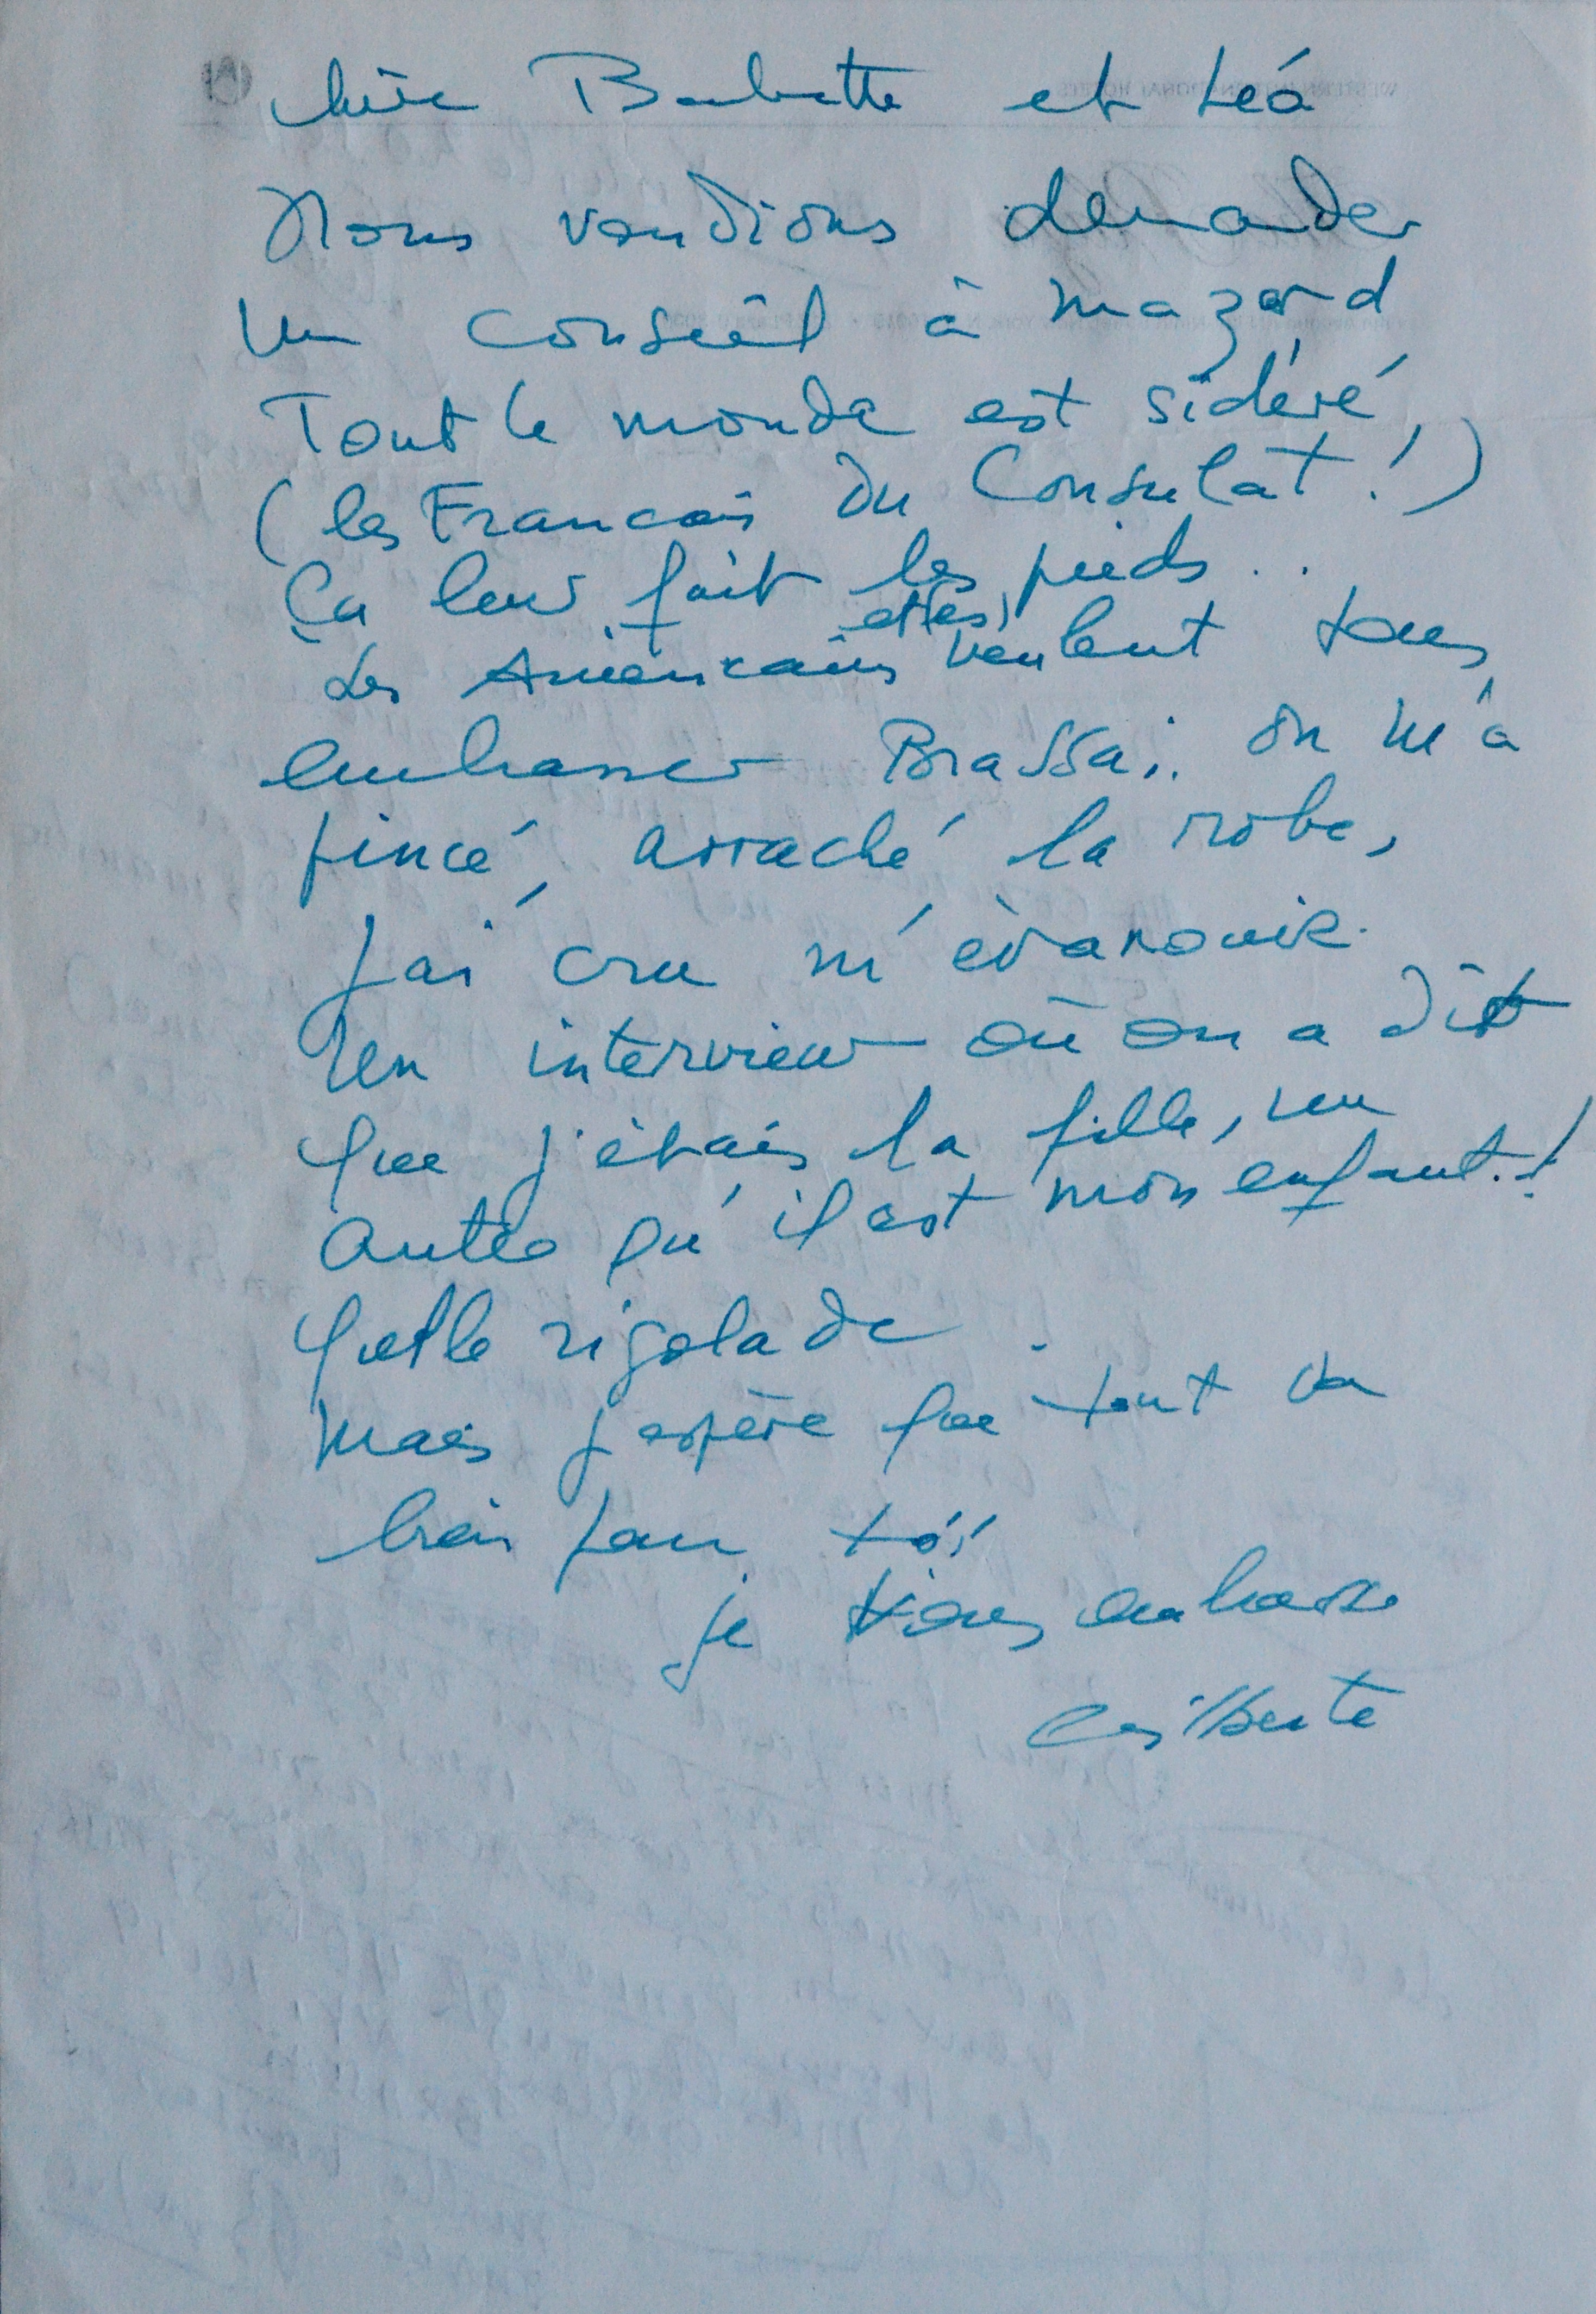 chère Babette et Léa
Nous voudrions demander
un conseil à mazard
Tout le monde est sidéré,
(les Francais du Consulat!)
Ça leur fait les pieds..
Les Américains et les, veulent tous
embrasser Brassaï. on m'a
pincé, arraché la robe,
J'ai cru m'évanouir.
Un interview où on a dit
que j'étais la fille, un
autre qu'il est mon enfant.!
Quelle rigolade.
mais j'espère que tout va
bien pour toi
je vous embrasse
Gilberte
WESTERN INTERNATIONAL HOTELS